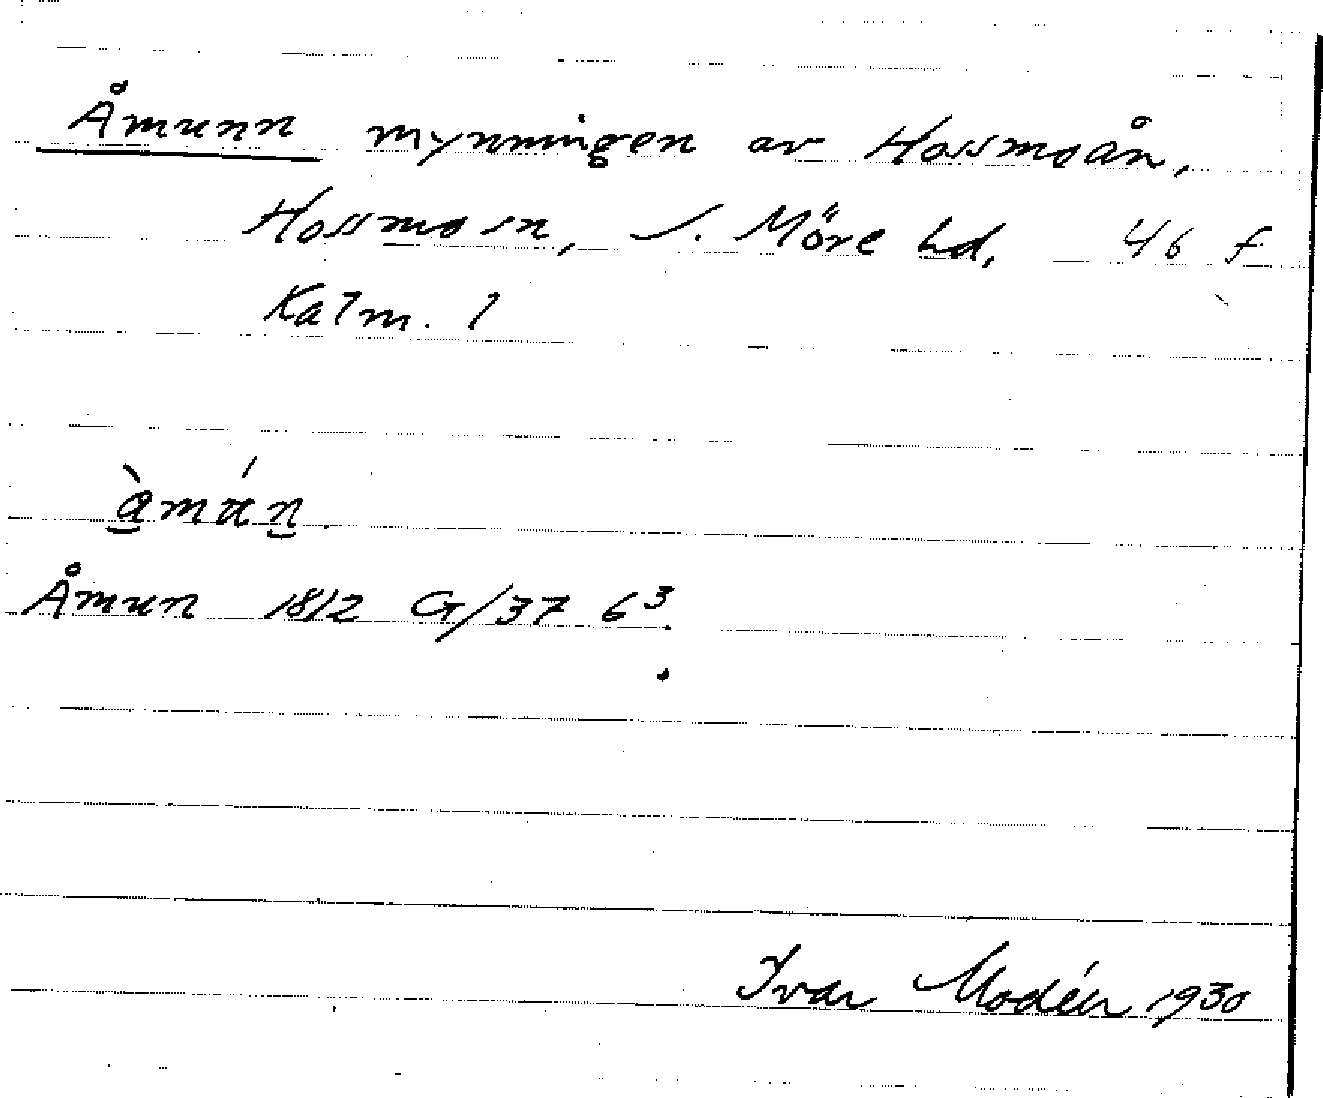 Åmunn mynningen av Hossmoån,
Hossmo sn, S. Möre hd, 46 f
Kalm. l
àmún
Åmun 1812 G/37 6³
Ivar Modéer 1930